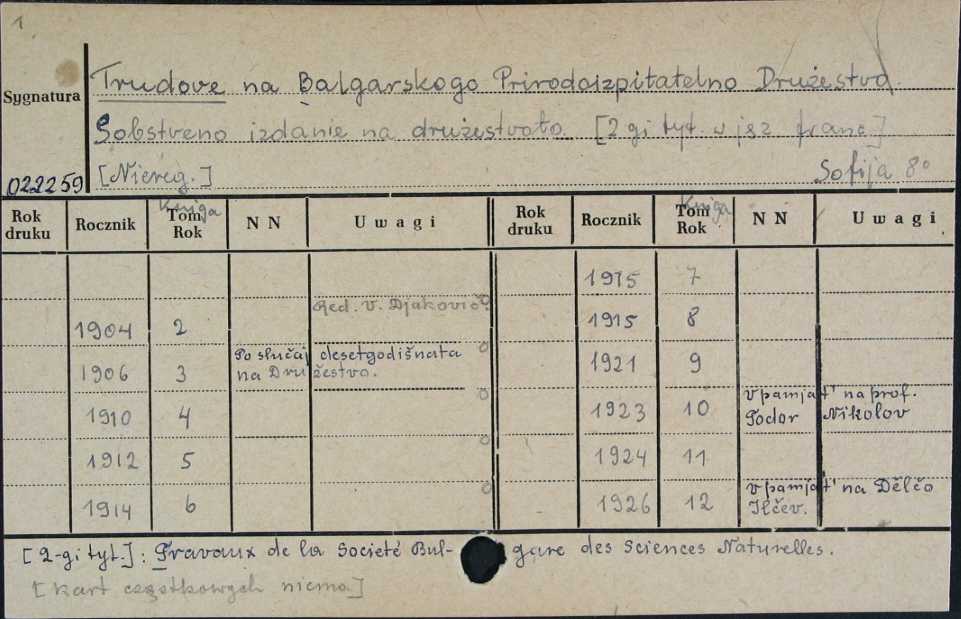 1
Trudove na Balgarskogo Prirodoizpitatelno Družestvo.
Sygnatura
Sobstveno izdanie na družestvoto. [2gi tyt. w jęz franc]
022259 [Niereg.] Sofija 8°
Rok druku Rocznik Tom Rok Knjga N N Uwagi Rok druku Rocznik Tom Rok Knjga N N Uwagi
1915 7
Red. V. Djakovič.
1904 2 1915 8
Po slučaj desetgodišnata
1906 3 na Družestvo. 1921 9
1910 4 1923 10 v pamjat' na prof. Todor Nikolov
1912 5 1924 11
1914 6 1926 12 v pamjat' na Dělčo Ilčev.
[2-gi tyt.]: Travaux de la Societé Bulgare des Sciences Naturelles.
[kart cząstkowych niema]